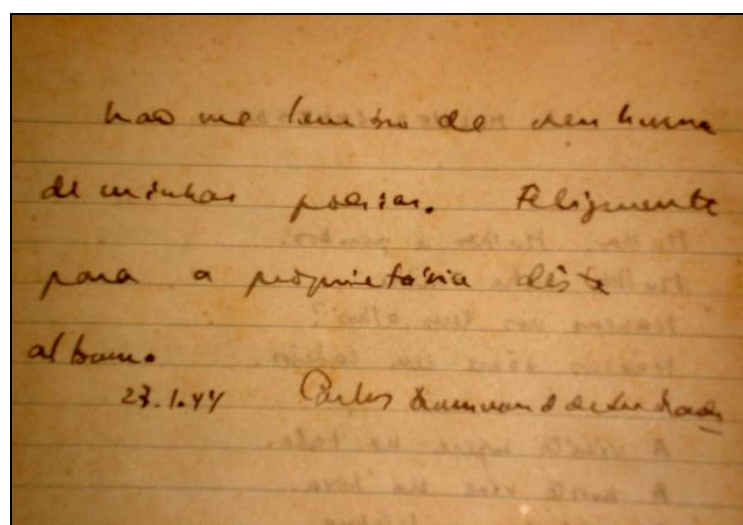 Não me lembro de nenhuma
de minhas poesias. Felizmente
para a proprietária dêste
album.
23.1.44 Carlos Drummond de Andrade